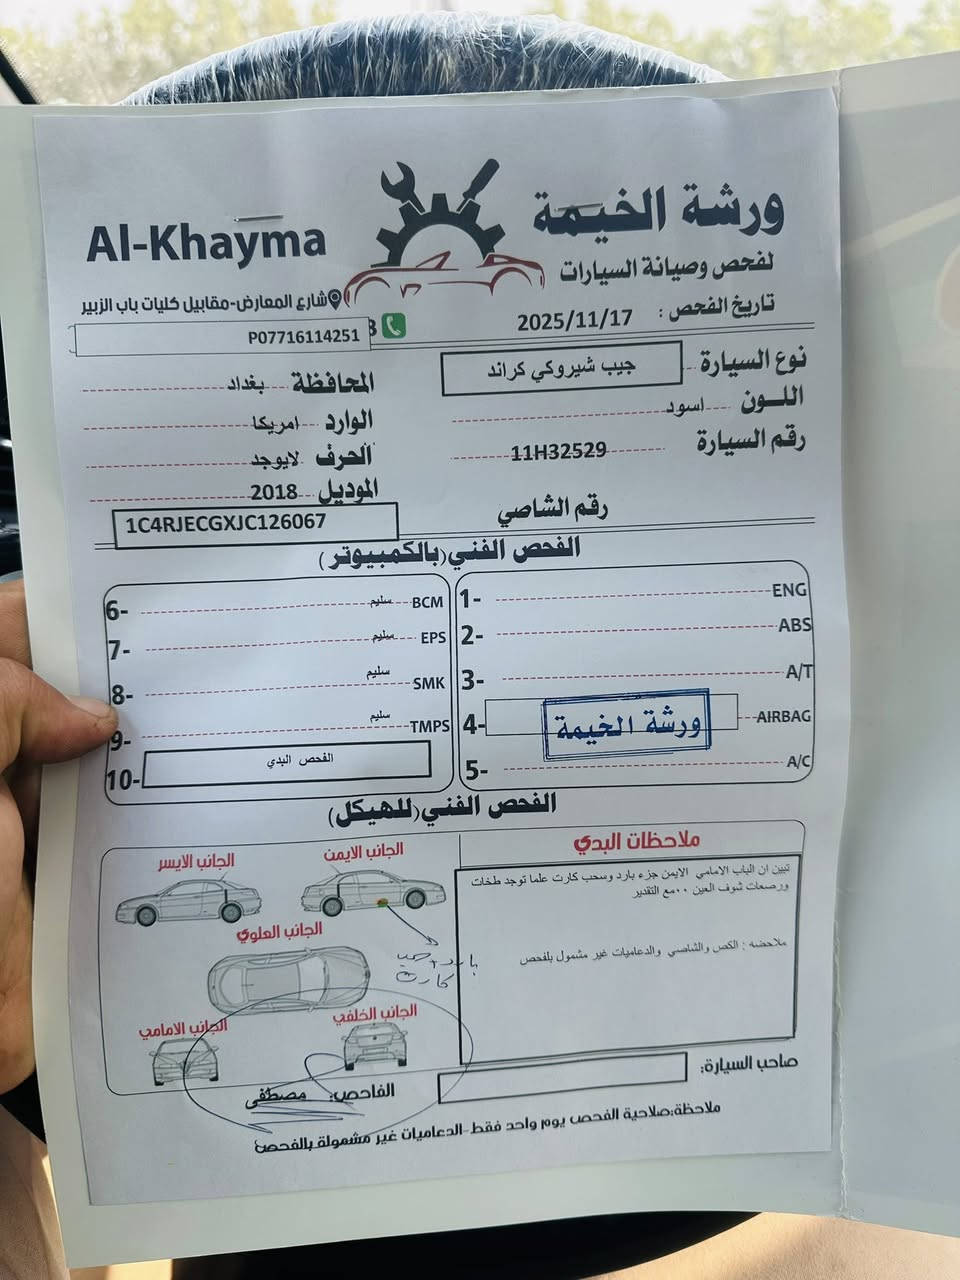 ورشة الخيمة
Al-Khayma
لفحص وصيانة السيارات
شارع المعارض-مقابيل كليات باب الزبير
تاريخ الفحص : 2025/11/17
P07716114251
نوع السيارة جيب شيروكي كراند
المحافظة بغداد
اللـــون اسود
الوارد امريكا
رقم السيارة 11H32529
الحرف لايوجد
الموديل 2018
رقم الشاصي
1C4RJECGXJC126067
الفحص الفني(بالكمبيوتر)
1- ENG
2- ABS
3- A/T
4- AIRBAG
ورشة الخيمة
5- A/C
6- سليم BCM
7- سليم EPS
8- سليم SMK
9- سليم TMPS
10- الفحص البدي
الفحص الفني(للهيكل)
ملاحظات البدي
تبين ان الباب الامامي الايمن جزء بارد وسحب كارت علما توجد طخات
ورصعات شوف العين ٠٠مع التقدير
ملاحضه : الكص والشاصي والدعاميات غير مشمول بلفحص
الجانب الايمن
الجانب الايسر
الجانب العلوي
بارد
كارت
الجانب الخلفي
الجانب الامامي
صاحب السيارة:
الفاحص: مصطفى
ملاحظة:صلاحية الفحص يوم واحد فقط-الدعاميات غير مشمولة بالفحص